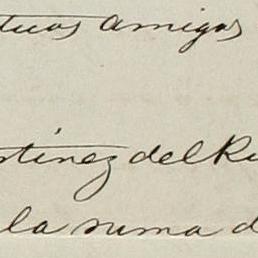 ticos amigos
rtinez del Ri
la suma d